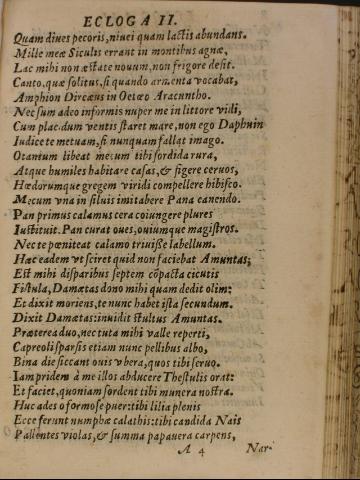 ECLOGA II.
Quam diues pecoris, niuei quam lactis abundans.
Mille meæ Siculis errant in montibus agnæ,
Lac mihi non æstate nouum, non frigore defit.
Canto, quæ solitus, si quando armenta vocabat,
Amphion Dircæus in Actæo Aracyntho.
Nec sum adeo informis nuper me in littore vidi,
Cum placidum ventis staret mare, non ego Daphnin
Iudice te metuam, si nunquam fallat imago.
O tantum libeat mecum tibi sordida rura,
Atque humiles habitare casas, & figere ceruos,
Hædorumque gregem viridi compellere hibisco.
Mecum vna in siluis imitabere Pana canendo.
Pan primus calamus cera coiungere plures
Iustituit. Pan curat oues, ouiumque magistros.
Nec te pœniteat calamo triuisse labellum.
Hæc eadem vt sciret quid non faciebat Amuntas;
Est mihi disparibus septem cōpacta cicutis
Fistula, Damætas dono mihi quam dedit olim:
Et dixit moriens, te nunc habet ista secundum.
Dixit Damætas: inuidit stultus Amuntas.
Præterea duo, nec tuta mihi valle reperti,
Capreoli sparsis etiam nunc pellibus albo,
Bina die siccant ouis vbera, quos tibi seruo.
Iam pridem à me illos abducere Thestulis orat:
Et faciet, quoniam sordent tibi munera nostra.
Huc ades o formose puer: tibi lilia plenis
Ecce ferunt numphæ calathis: tibi candida Nais
Pallentes violas, & summa papauera carpens,
A 4 Nar-